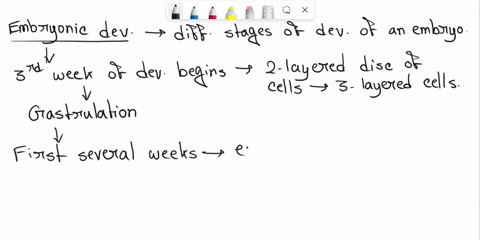 Embryonic dev. → diff. stages of dev. of an embryo.
3rd week of dev. begins → 2-layered disc of
cells → 3-layered cells.
Gastrulation
First several weeks → e.